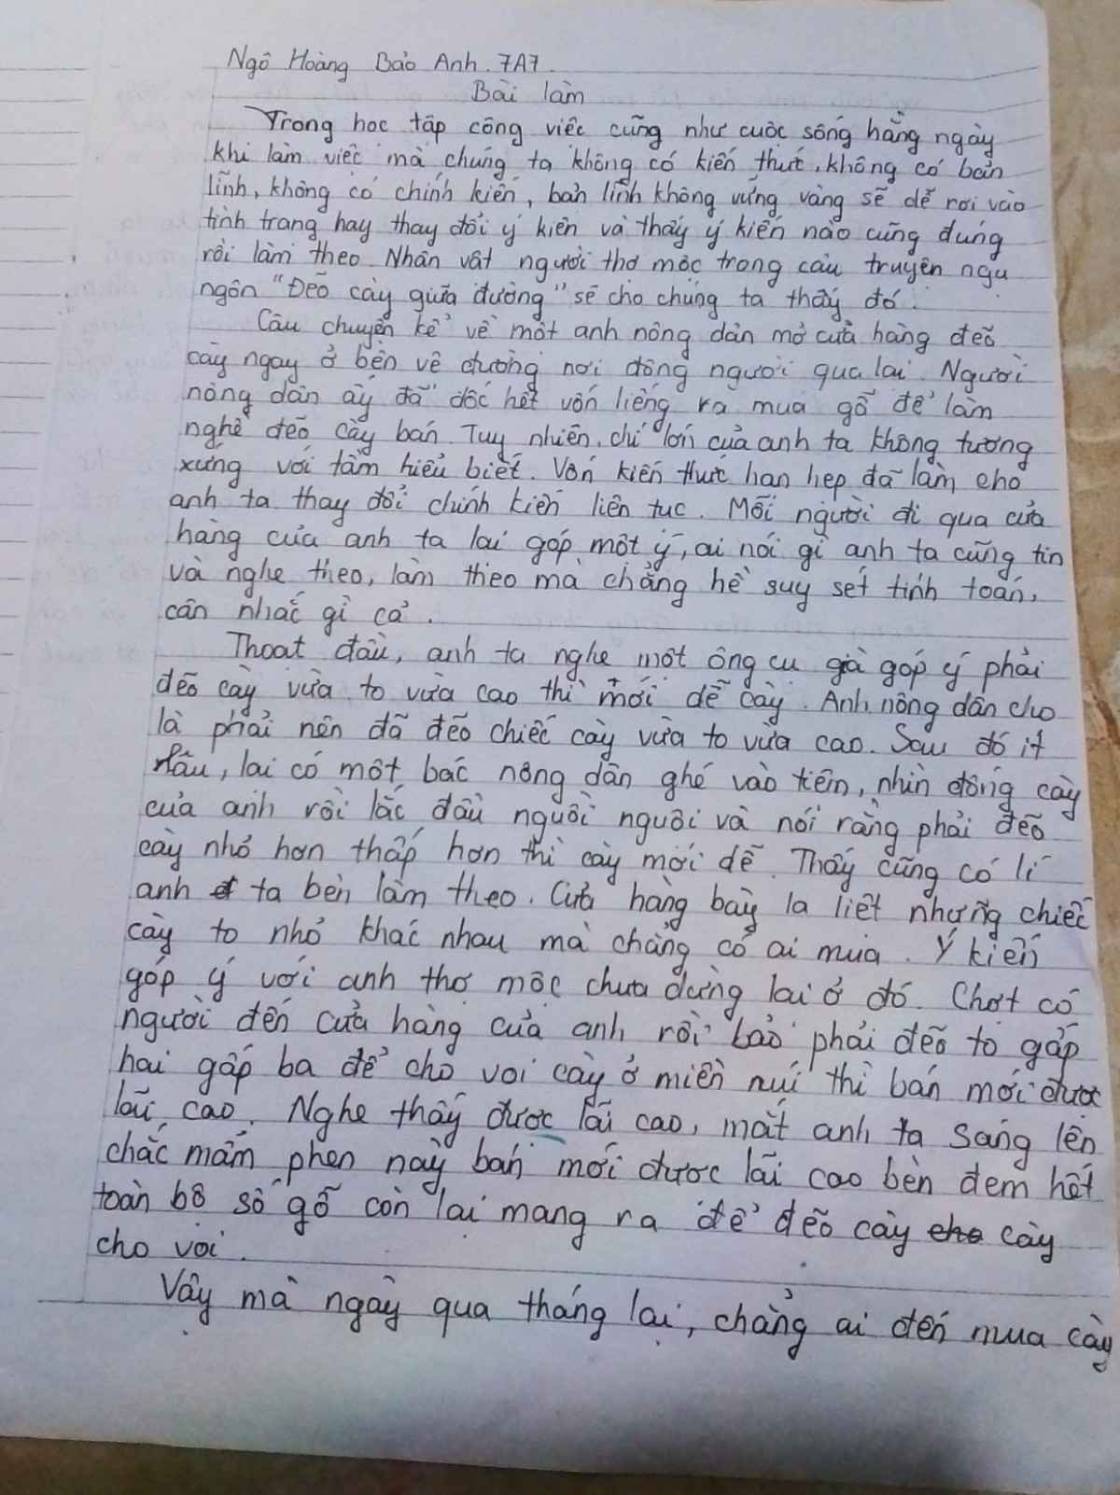 Ngô Hoàng Bảo Anh. 7A7.
Bài làm
Trong học tập công việc cũng như cuộc sống hằng ngày
khi làm việc mà chúng ta không có kiến thức, không có bản
lĩnh, không có chính kiến, bản lĩnh không vững vàng sẽ dễ rơi vào
tình trạng hay thay đổi ý kiến và thấy ý kiến nào cũng đúng
rồi làm theo. Nhân vật người thợ mộc trong câu truyện ngụ
ngôn "Đẽo cày giữa đường" sẽ cho chúng ta thấy đó.
Câu chuyện kể về một anh nông dân mở cửa hàng đẽo
cày ngay ở bên vệ đường nơi đông người qua lại. Người
nông dân ấy đã dốc hết vốn liếng ra mua gỗ để làm
nghề đẽo cày bán. Tuy nhiên, chí lớn của anh ta không tương
xứng với tầm hiểu biết. Vốn kiến thức hạn hẹp đã làm cho
anh ta thay đổi chính kiến liên tục. Mỗi người đi qua cửa
hàng của anh ta lại góp một ý, ai nói gì anh ta cũng tin
và nghe theo, làm theo mà chẳng hề suy sét tính toán,
cân nhắc gì cả.
Thoạt đầu, anh ta nghe một ông cụ già góp ý phải
đẽo cày vừa to vừa cao thì mới dễ cày. Anh nông dân cho
là phải nên đã đẽo chiếc cày vừa to vừa cao. Sau đó ít
lâu, lại có một bác nông dân ghé vào tiệm, nhìn đống cày
của anh rồi lắc đầu nguồi nguội và nói rằng phải đẽo
cày nhỏ hơn thấp hơn thì cày mới dễ. Thấy cũng có lí
anh ta bèn làm theo. Cửa hàng bày la liệt những chiếc
cày to nhỏ khác nhau mà chẳng có ai mua. Ý kiến
góp ý với anh thợ mộc chưa dừng lại ở đó. Chợt có
người đến cửa hàng của anh rồi bảo phải đẽo to gấp
hai gấp ba để cho voi cày ở miền núi thì bán mới được
lãi cao. Nghe thấy được lãi cao, mắt anh ta sáng lên
chắc mẩm phen này bán mới được lãi cao bèn đem hết
toàn bộ số gỗ còn lại mang ra để đẽo cày cho cày
cho voi.
Vậy mà ngày qua tháng lại, chẳng ai đến mua cày